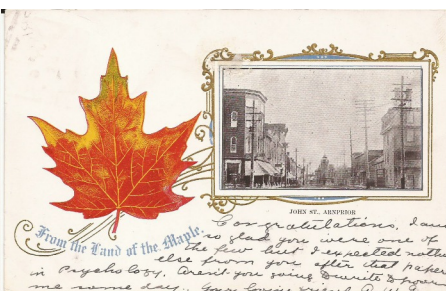 JOHN ST., ARNPRIOR
From the Land of the Maple.
Congratulations, I am
so glad you were one of
the few but I expected nothing
else from you after that paper
in Psychology. Aren't you going to write to
me some day. Your loving friend